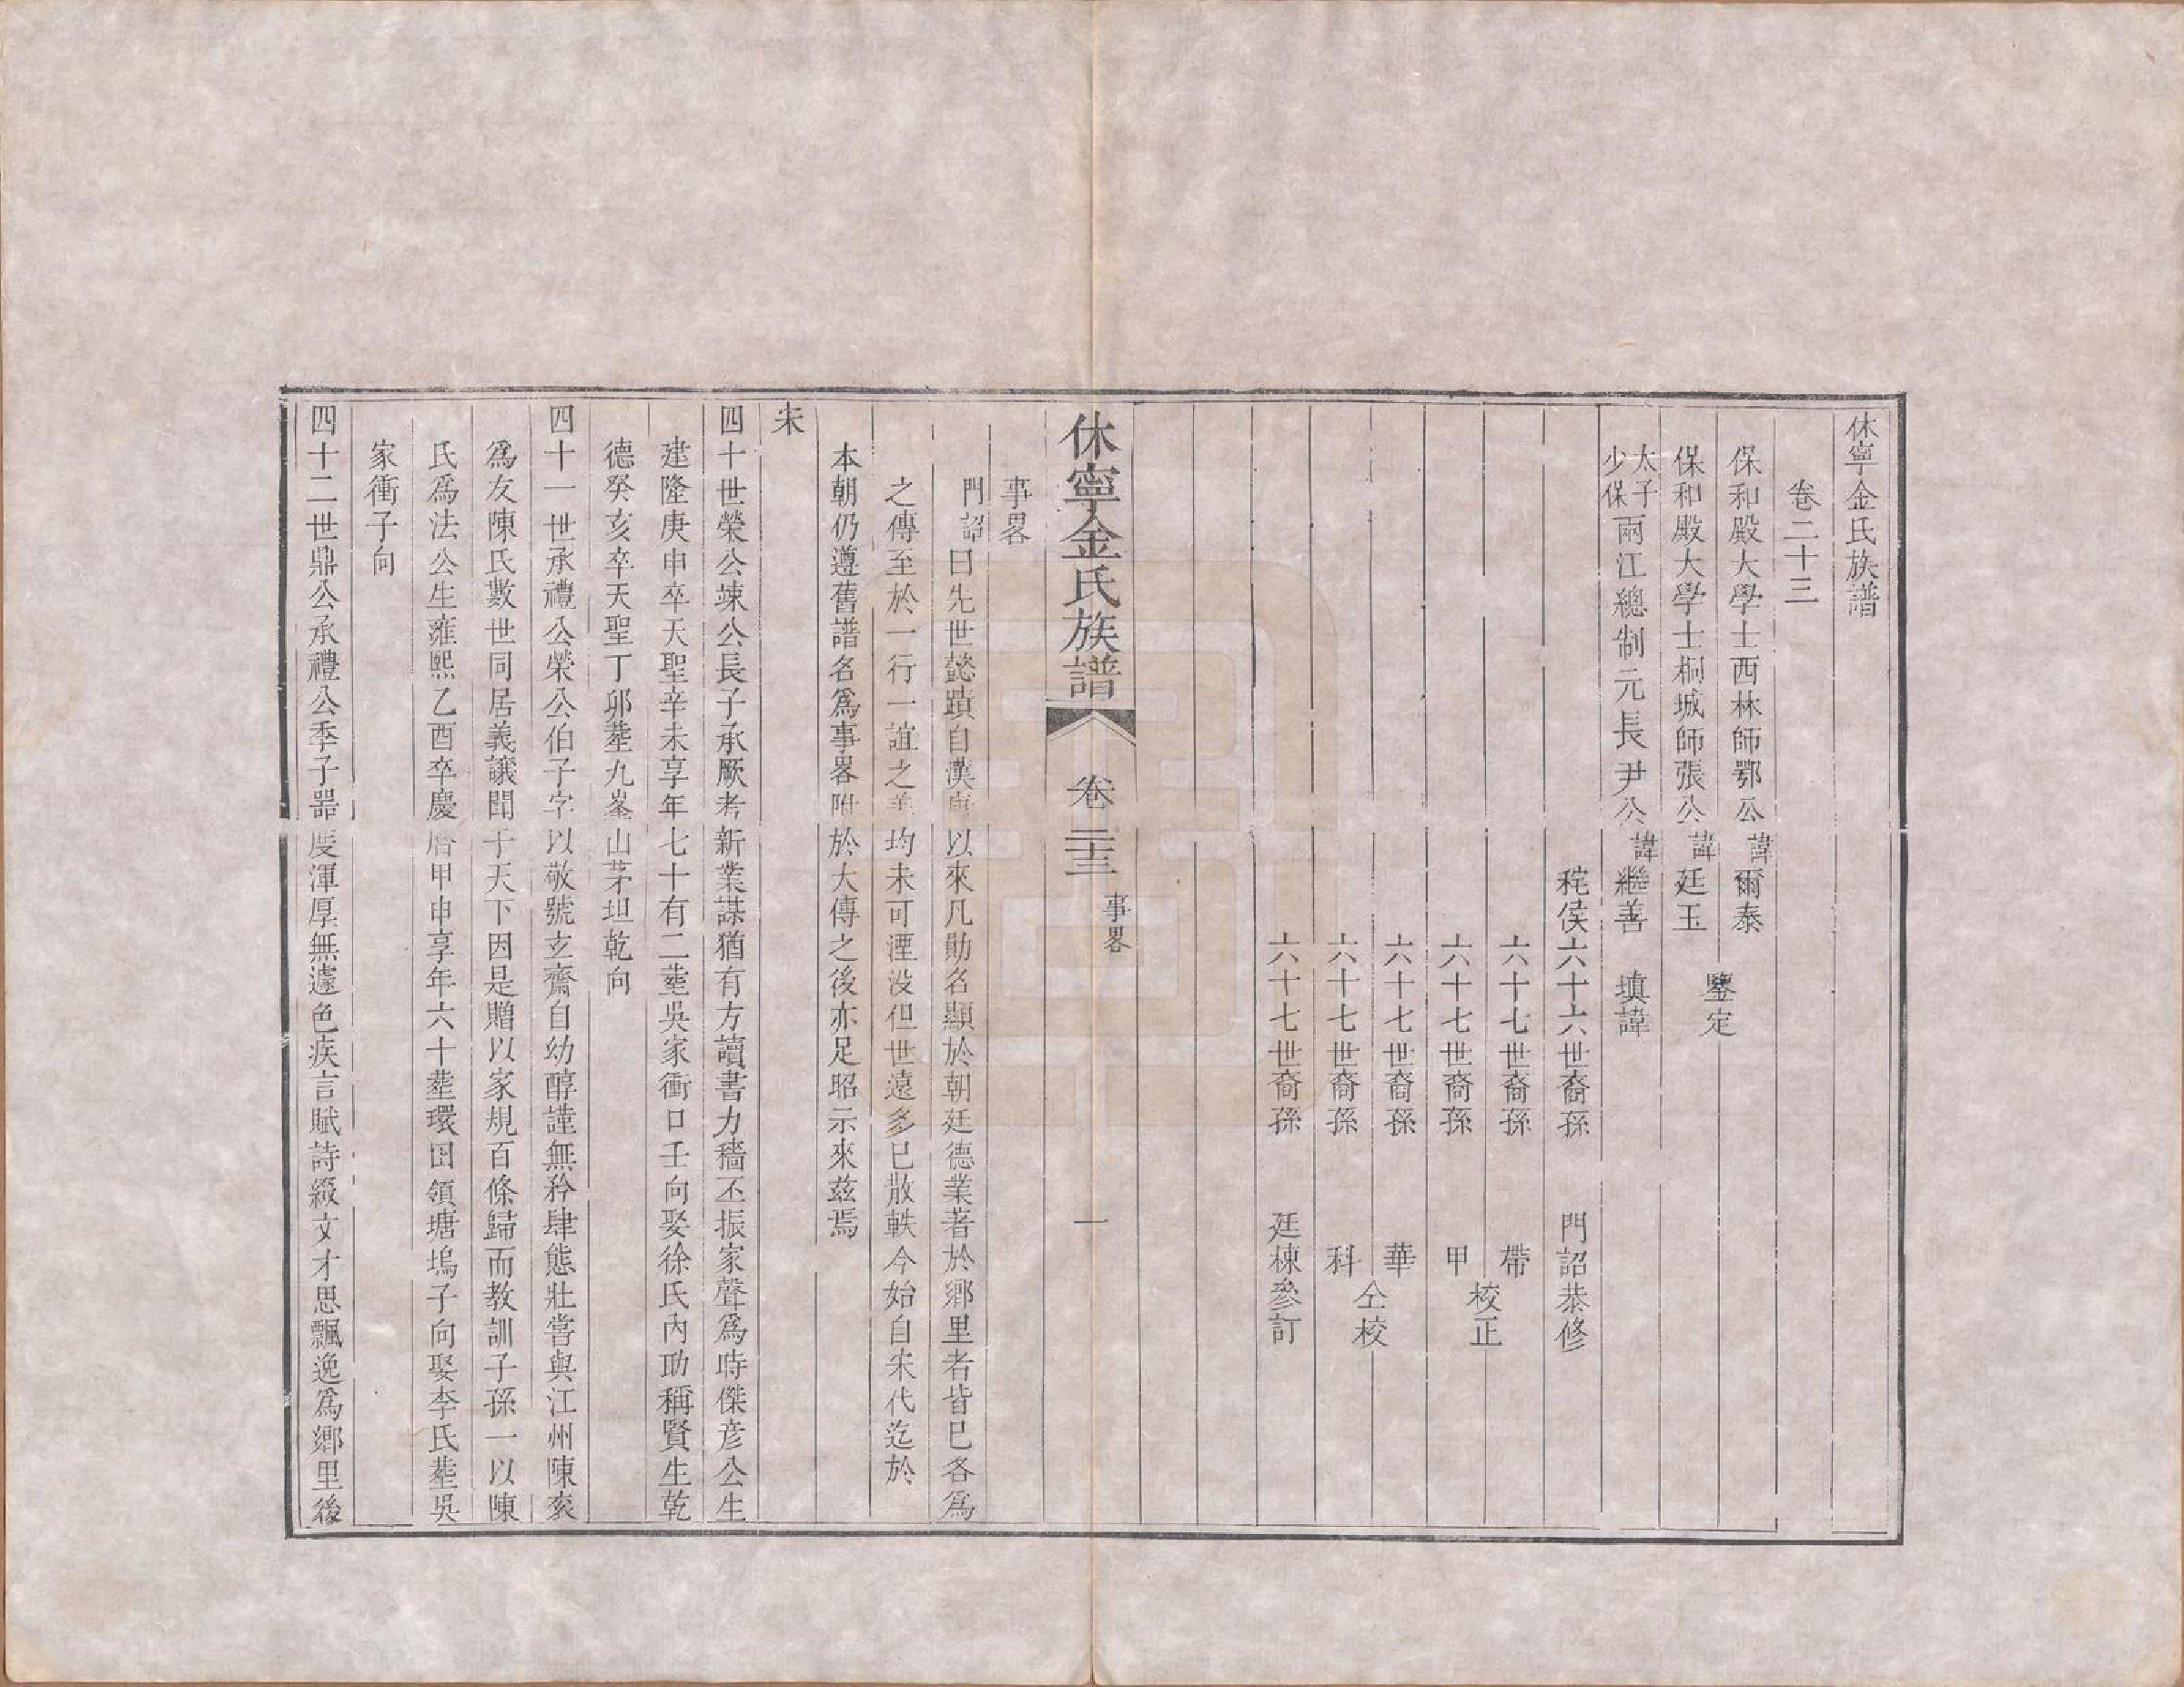 休寧金氏族譜
卷二十三
保和殿大學士西林師鄂公諱爾泰
保和殿大學士桐城師張公諱廷玉
鑒定
太子少保兩江總制元長尹公諱繼善 填諱
秺侯六十六世裔孫 門詔恭修
六十七世裔孫 帶
六十七世裔孫 甲
校正
六十七世裔孫 華
六十七世裔孫 科
仝校
六十七世裔孫 廷棟參訂
休寧金氏族譜 卷二十三 事畧 一
事畧
門詔曰先世懿蹟自漢唐以來凡勛名顯於朝廷德業著於鄉里者皆已各為
之傳至於一行一誼之美均未可湮没但世遠多已散軼今始自宋代迄於
本朝仍遵舊譜名為事畧附於大傳之後亦足昭示來茲焉
宋
四十世榮公竦公長子承厥考新業謀猶有方讀書力穡丕振家聲為時傑彦公生
建隆庚申卒天聖辛未享年七十有二塟吳家衝口壬向娶徐氏內助稱賢生乾
德癸亥卒天聖丁卯塟九峯山茅坦乾向
四十一世承禮公榮公伯子字以敬號玄齋自幼醇謹無矜肆態壯嘗與江州陳袞
為友陳氏數世同居義讓聞于天下因是贈以家規百條歸而教訓子孫一以陳
氏為法公生雍熙乙酉卒慶曆甲申享年六十塟環田領塘塢子向娶李氏塟吳
家衝子向
四十二世鼎公承禮公季子器度渾厚無遽色疾言賦詩綴文才思飄逸為鄉里後